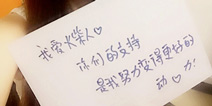 我爱火柴人♡
你们的支持
是我努力变得更好的
动力